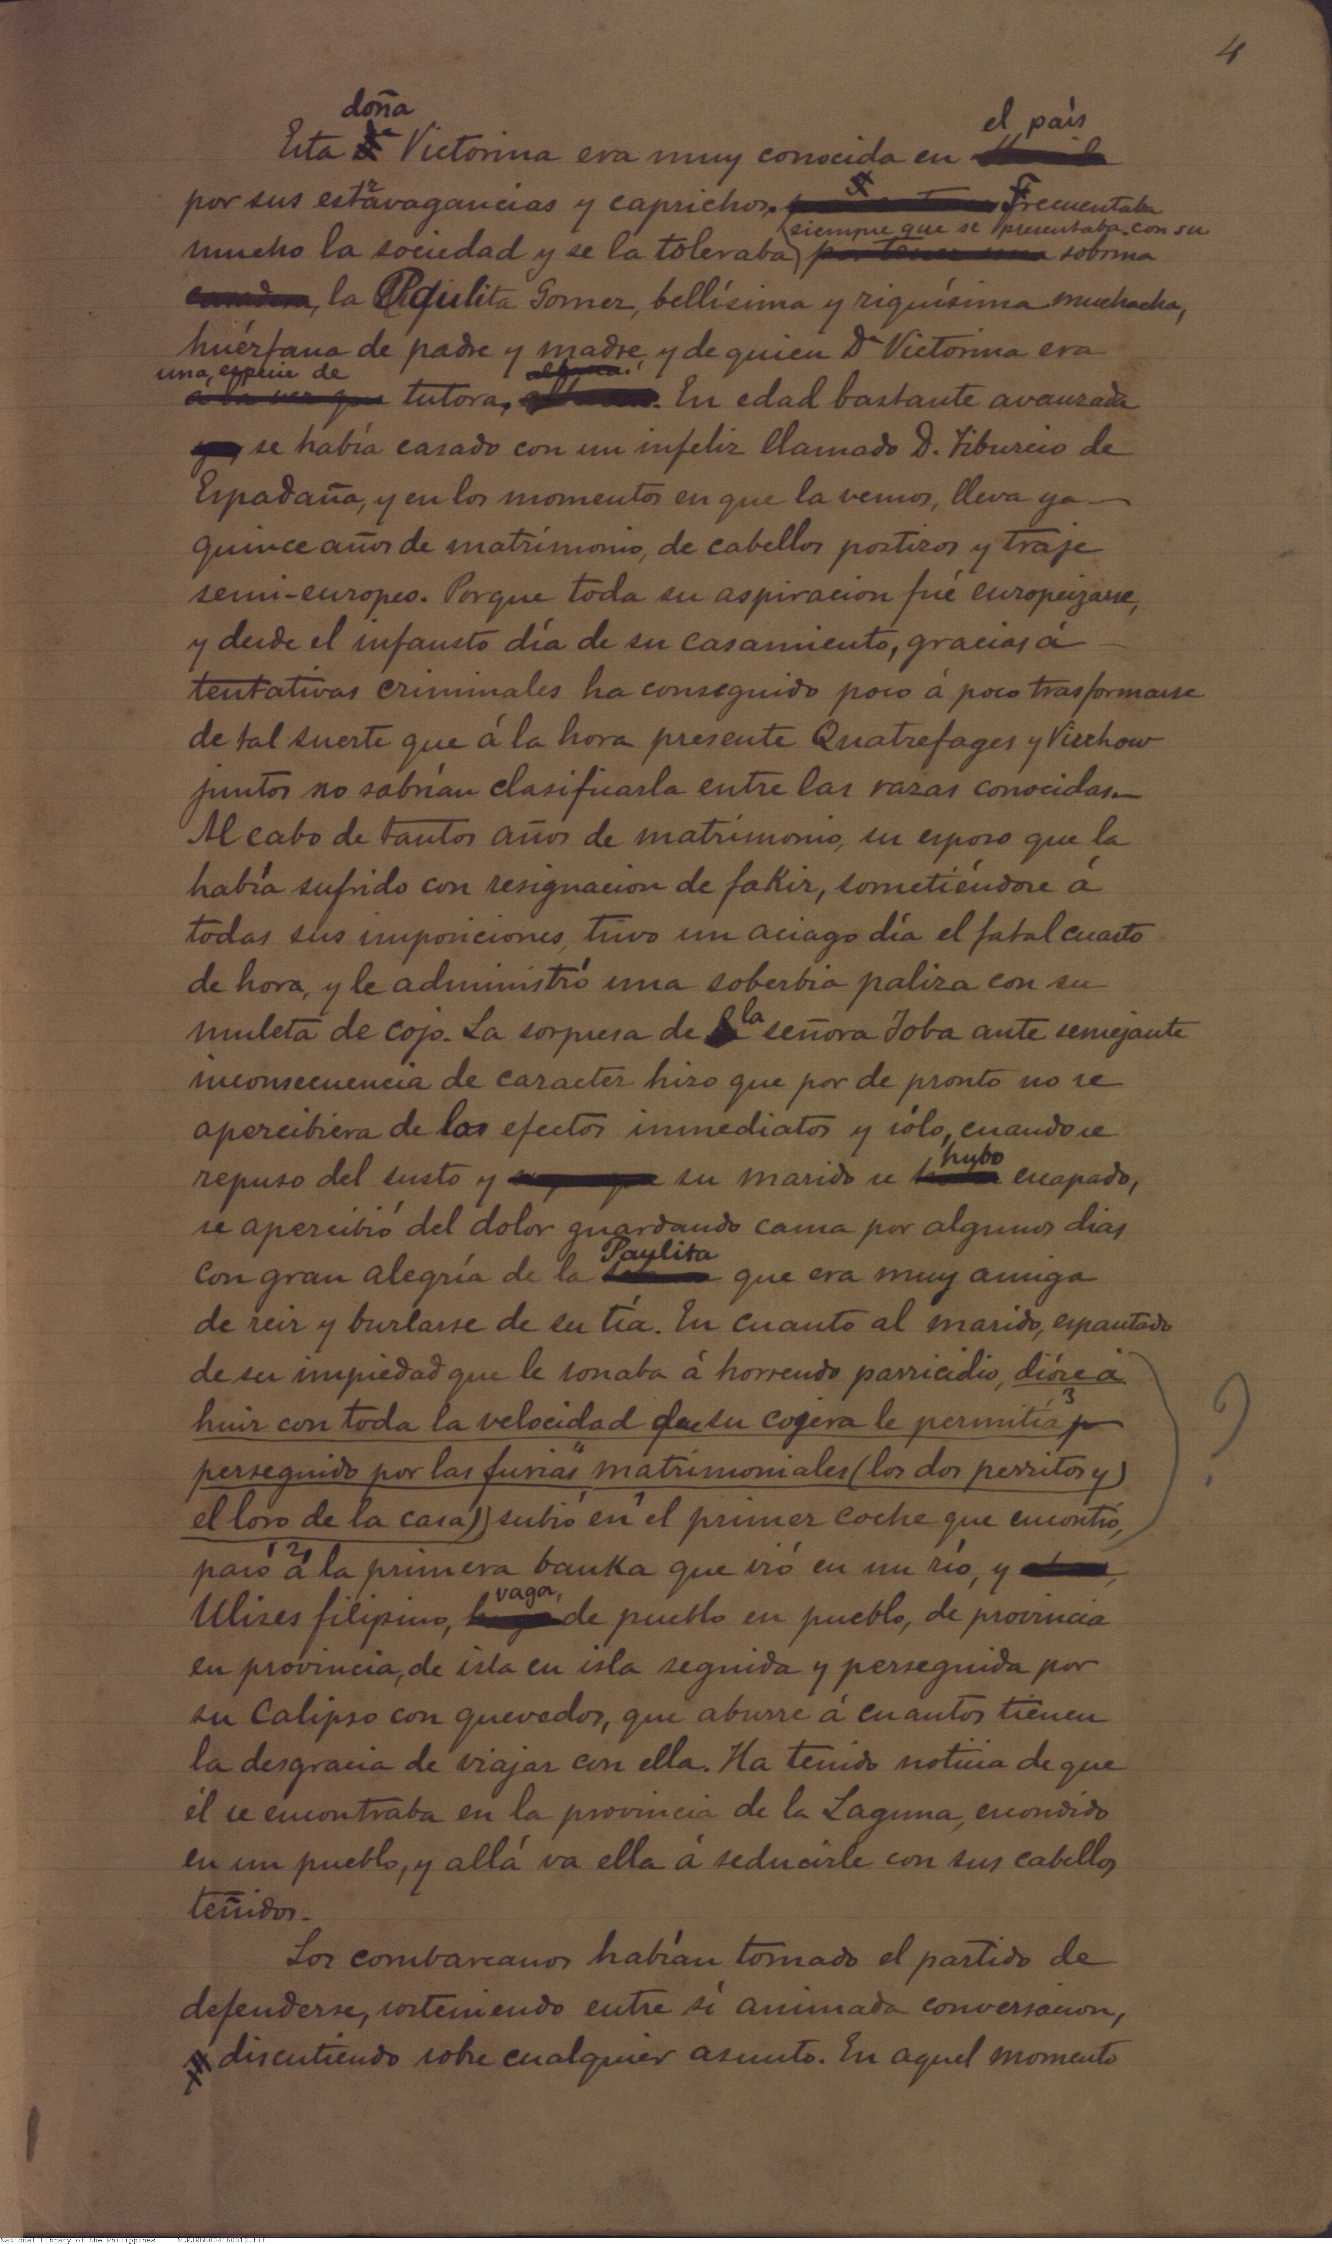 4
doña
el país
Esta Victorina era muy conocida en
por sus estravagancias y caprichos. Frecuentaba
siempre que se presentaba con su
mucho la sociedad y se la toleraba sobrina
, la Paulita Gomez, bellísima y riquísima muchacha,
huérfana de padre y madre, y de quien Dª Victorina era
una especie de
tutora, . En edad bastante avanzada
se había casado con un infeliz llamado D. Tiburcio de
Espadaña, y en los momentos en que la vemos, lleva ya
quince años de matrimonio, de cabellos postizos y traje
semi-europeo. Porque toda su aspiracion fué europeizarse,
y desde el infausto día de su casamiento, gracias á
tentativas criminales ha conseguido poco á poco trasformarse
de tal suerte que á la hora presente Quatrefages y Virchow
juntos no sabrían clasificarla entre las razas conocidas.
Al cabo de tantos años de matrimonio, su esposo que la
había sufrido con resignacion de faKir, sometiéndose á
todas sus imposiciones, tuvo un aciago día el fatal cuarto
de hora, y le administró una soberbia paliza con su
muleta de cojo. La sorpresa de la señora Joba ante semejante
inconsecuencia de caracter hizo que por de pronto no se
apercibiera de los efectos inmediatos y sólo, cuando se
repuso del susto y su marido se hubo escapado,
se apercibió del dolor guardando cama por algunos dias
con gran alegría de la Paulita que era muy amiga
de reir y burlarse de su tía. En cuanto al marido, espantado
de su impiedad que le sonaba á horrendo parricidio, dióse á
huir con toda la velocidad que su cojera le permitía
3
perseguido por las furias matrimoniales (los dos perritos y
el loro de la casa)) subió en el primer coche que encontró,
pasó á la primera banKa que vió en un río, y
Ulises filipino, vaga de pueblo en pueblo, de provincia
en provincia, de isla en isla seguida y perseguida por
su Calipso con quevedos, que aburre á cuantos tienen
la desgracia de viajar con ella. Ha tenido noticia de que
él se encontraba en la provincia de la Laguna, escondido
en un pueblo, y allá va ella á seducirle con sus cabellos
teñidos.
Los combarcanos habían tomado el partido de
defenderse, sosteniendo entre sí animada conversacion,
discutiendo sobre cualquier asunto. En aquel momento
National Library of the Philippines